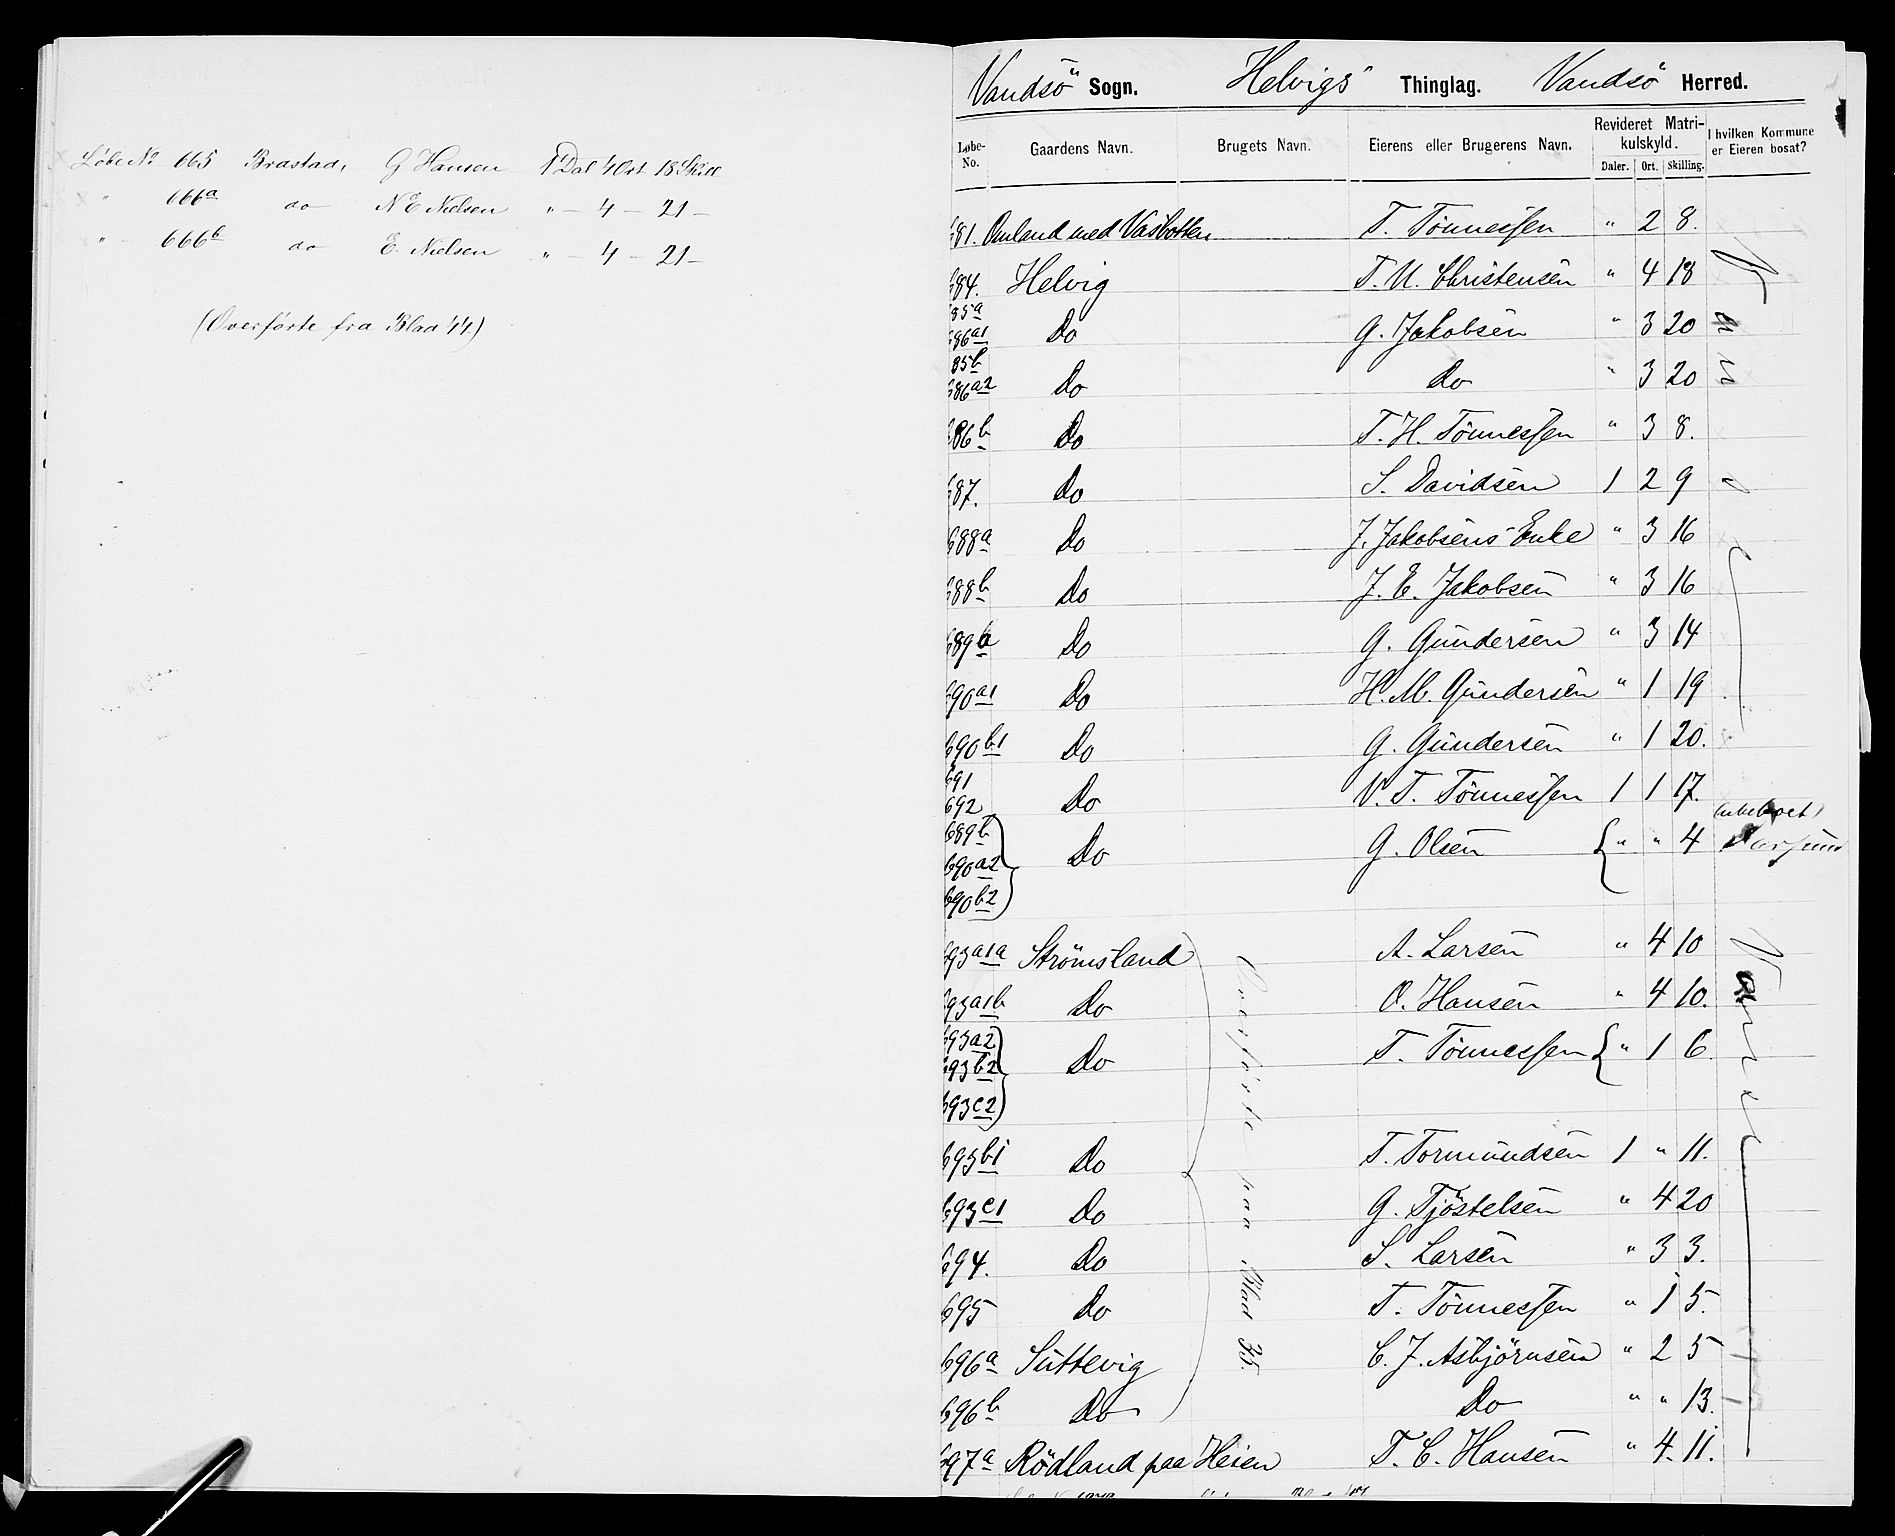 Löbe No 665 Brastad, G Hansen 1 Dal 4 Ort 18 Skill
" 666a do N E Nielsen " – 4 – 21 –
" 666b do E. Nielsen " – 4 – 21 –
(Overførte fra Blad 44)
Vandsö Sogn. Helvigs Thinglag. Vandsö Herred.
Løbe-No. Gaardens Navn. Brugets Navn. Eierens eller Brugerens Navn. Revideret Matrikulskyld. Daler. Ort. Skilling. I hvilken Kommune er Eieren bosat?
681. Omland med Vasbotten T. Tönnessen " 2 8.
684. Helvig T. U. Christensen " 4 18
685a 686a1 Do G. Jakobsen " 3 20
685b 686a2 Do Do " 3 20
686b Do T. H. Tönnessen " 3 8.
687. Do S. Davidsen 1 2 9
688a Do J. Jakobsens Enke " 3 16
688b Do J. E. Jakobsen " 3 16
689a Do G. Gundersen " 3 14
690a1 Do H. M. Gundersen " 1 19
690b1 Do G. Gundersen " 1 20.
691
692 Do V. T. Tönnessen 1 1 17.
689b
690a2 Do G. Olsen " " 4
690b2
693a1a Strömsland A. Larsen " 4 10
693a1b Do O. Hansen " 4 10.
693a2
693b2 Do T. Tönnessen " 1 6.
693c2
693b1 Do T. Tormundsen 1 " 11.
693c1 Do G. Tjöstelsen " 4 20
694. Do S. Larsen " 3 3.
695 Do T. Tönnessen " 1 5.
696a Sittevig C. J. Asbjörnsen " 2 5
696b Do Do " " 13.
697a Rödland paa Heien T. C. Hansen " 4. 11.
Overførte paa Blad 35.